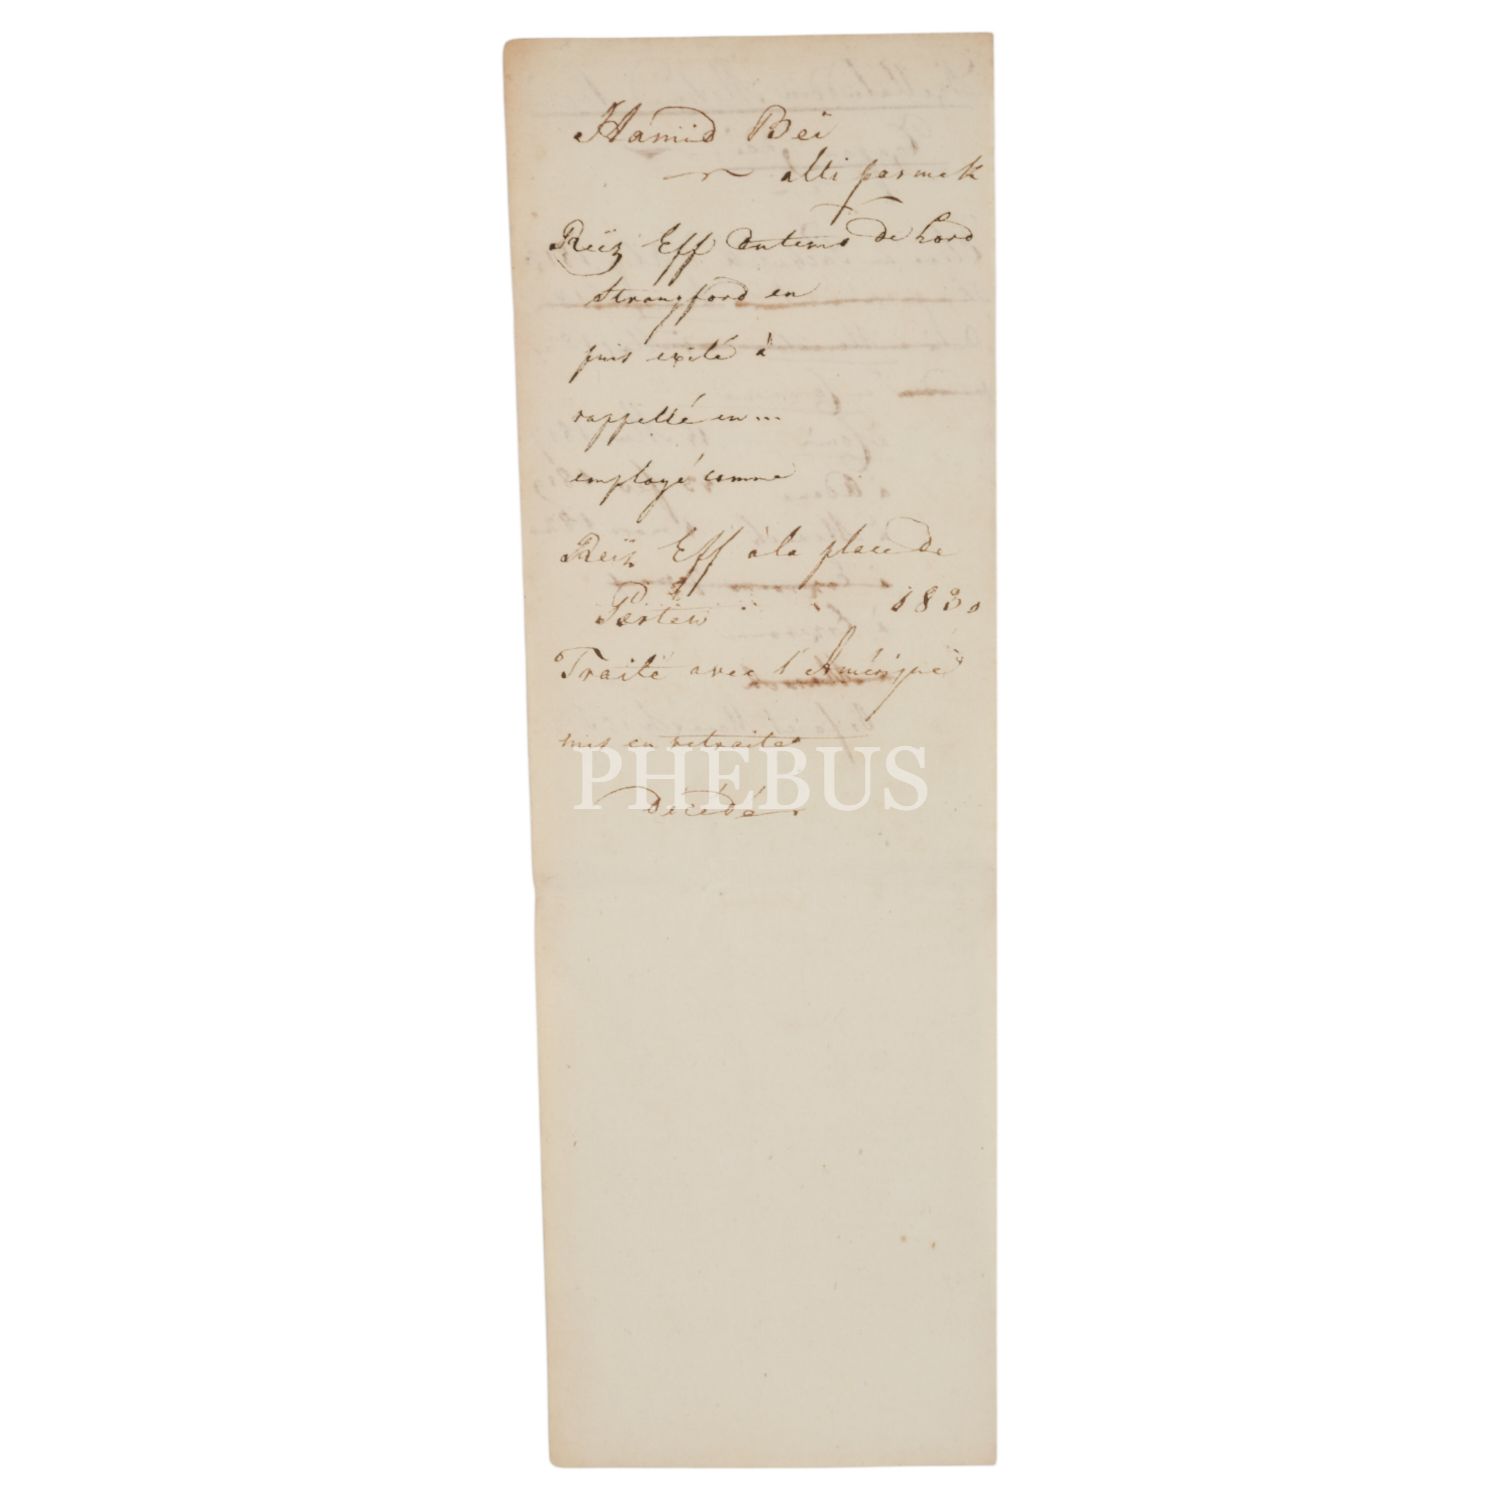 Hamid Beï
alti parmak
Reïz Eff du tems de Lord
Strangford en
puis exilé à
rappellé en...
employé comme
Reïz Eff à la place de
Pertew 1830
Traité avec l'Amérique
mis en retraite
PHEBUS
décédé